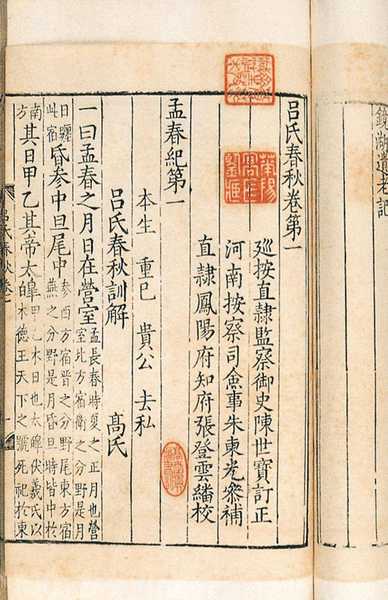 鏡湖遺老記
呂氏春秋卷第一
廵按直隷監察御史陳世寶訂正
河南按察司僉事朱東光叅補
直隷鳳陽府知府張登雲繙校
孟春紀第一
本生 重巳 貴公 去私
呂氏春秋訓解 高氏
一曰孟春之月日在營室孟長春時夏之正月也營室北方宿衛之分野是月
日躔此宿昏參中旦尾中參西方宿晉之分野尾東方宿燕之分野是月昏旦時皆中於
南方其日甲乙其帝太皥甲乙木日也太皥伏羲氏以木德王天下之號死祀於東
呂氏春秋卷一